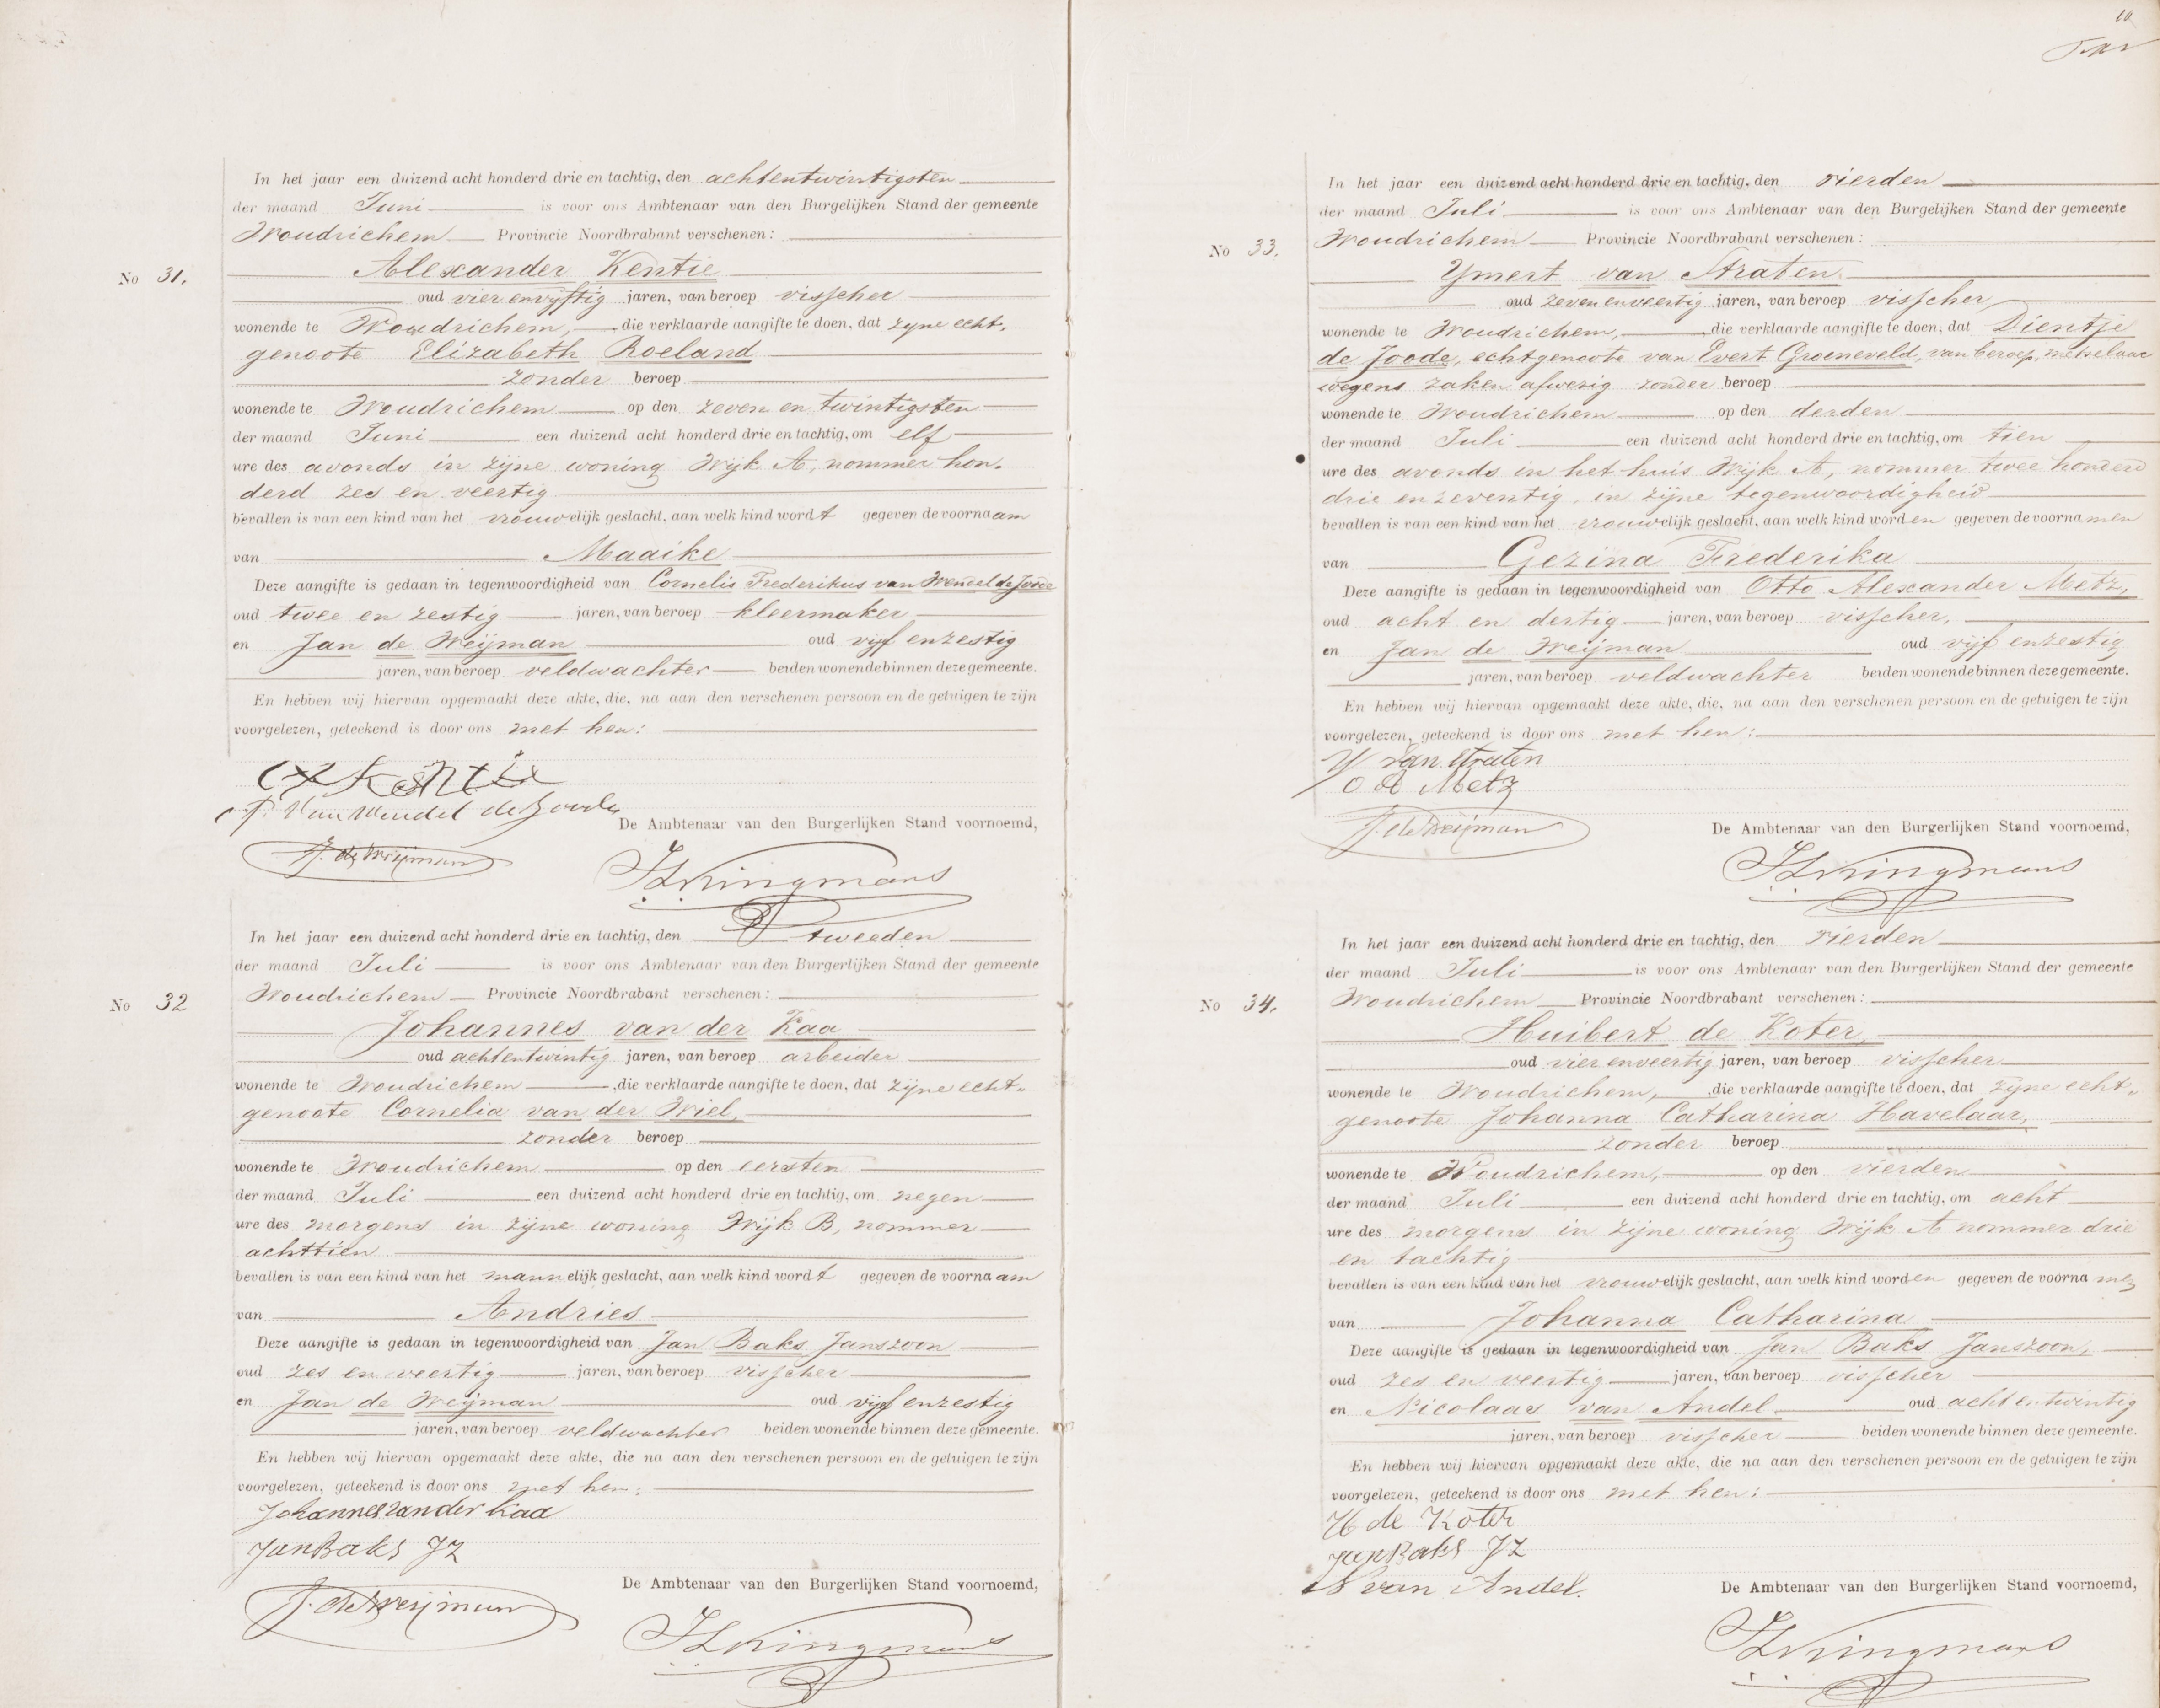 In het jaar een duizend acht honderd drie en tachtig, den achtentwintigsten
der maand Juni is voor ons Ambtenaar van den Burgelijken Stand der gemeente
Woudrichem Provincie Noordbrabant verschenen:
No 31.
Alexander Kentie
oud vier en vijftig jaren, van beroep visscher
wonende te Woudrichem, die verklaarde aangifte te doen, dat zijne echt-
genoote Elizabeth Roeland
zonder beroep
wonende te Woudrichem op den zeven en twintigsten
der maand Juni een duizend acht honderd drie en tachtig, om elf
ure des avonds in zijne woning Wijk A, nommer hon-
derd zes en veertig
bevallen is van een kind van het vrouwelijk geslacht, aan welk kind wordt gegeven de voornaam
van Maaike
Deze aangifte is gedaan in tegenwoordigheid van Cornelis Frederikus van Wendel de Joode
oud twee en zestig jaren, van beroep kleermaker
en Jan de Weijman oud vijf en zestig
jaren, van beroep veldwachter beiden wonende binnen deze gemeente.
En hebben wij hiervan opgemaakt deze akte, die, na aan den verschenen persoon en de getuigen te zijn
voorgelezen, geteekend is door ons met hen:
A Kentie
Van Wendel de Joode
De Ambtenaar van den Burgerlijken Stand voornoemd,
J. de Weijman
Kingmans
In het jaar een duizend acht honderd drie en tachtig, den tweeden
der maand Juli is voor ons Ambtenaar van den Burgerlijken Stand der gemeente
Woudrichem Provincie Noordbrabant verschenen:
No 32
Johannes van der Kaa
oud achtentwintig jaren, van beroep arbeider
wonende te Woudrichem, die verklaarde aangifte te doen, dat zijne echt-
genoote Cornelia van der Wiel,
zonder beroep
wonende te Woudrichem op den eersten
der maand Juli een duizend acht honderd drie en tachtig, om negen
ure des morgens in zijne woning Wijk B, nommer
achttien
bevallen is van een kind van het mannelijk geslacht, aan welk kind wordt gegeven de voornaam
van Andries
Deze aangifte is gedaan in tegenwoordigheid van Jan Baks Janszoon
oud zes en veertig jaren, van beroep visscher
en Jan de Weijman oud vijf en zestig
jaren, van beroep veldwachter beiden wonende binnen deze gemeente.
En hebben wij hiervan opgemaakt deze akte, die na aan den verschenen persoon en de getuigen te zijn
voorgelezen, geteekend is door ons met hen:
Johannes van der Kaa
Jan Baks JZ
De Ambtenaar van den Burgerlijken Stand voornoemd,
J. de Weijman
Kingmans
10
In het jaar een duizend acht honderd drie en tachtig, den vierden
der maand Juli is voor ons Ambtenaar van den Burgelijken Stand der gemeente
Woudrichem Provincie Noordbrabant verschenen:
No 33.
Ymert van Straten
oud zeven en veertig jaren, van beroep visscher,
wonende te Woudrichem, die verklaarde aangifte te doen, dat Dientje
de Joode, echtgenoote van Evert Groeneveld, van beroep, metselaar
wegens zaken afwezig zonder beroep
wonende te Woudrichem op den derden
der maand Juli een duizend acht honderd drie en tachtig, om tien
ure des avonds in het huis Wijk A, nommer twee honderd
drie en zeventig, in zijne tegenwoordigheid
bevallen is van een kind van het vrouwelijk geslacht, aan welk kind worden gegeven de voornamen
van Gezina Frederika
Deze aangifte is gedaan in tegenwoordigheid van Otto Alexander Metz,
oud acht en dertig jaren, van beroep visscher,
en Jan de Weijman oud vijf en zestig
jaren, van beroep veldwachter beiden wonende binnen deze gemeente.
En hebben wij hiervan opgemaakt deze akte, die, na aan den verschenen persoon en de getuigen te zijn
voorgelezen, geteekend is door ons met hen:
Y van Straten
O A Metz
J. de Weijman
De Ambtenaar van den Burgerlijken Stand voornoemd,
Kingmans
In het jaar een duizend acht honderd drie en tachtig, den vierden
der maand Juli is voor ons Ambtenaar van den Burgerlijken Stand der gemeente
Woudrichem Provincie Noordbrabant verschenen:
No 34.
Huibert de Koter,
oud vier en veertig jaren, van beroep visscher
wonende te Woudrichem, die verklaarde aangifte te doen, dat zijne echt-
genoote Johanna Catharina Havelaar,
zonder beroep
wonende te Woudrichem, op den vierden
der maand Juli een duizend acht honderd drie en tachtig, om acht
ure des morgens in zijne woning Wijk A nommer drie
en tachtig
bevallen is van een kind van het vrouwelijk geslacht, aan welk kind worden gegeven de voornamen
van Johanna Catharina
Deze aangifte is gedaan in tegenwoordigheid van Jan Baks Janszoon,
oud zes en veertig jaren, van beroep visscher
en Nicolaas van Andel oud achtentwintig
jaren, van beroep visscher beiden wonende binnen deze gemeente.
En hebben wij hiervan opgemaakt deze akte, die na aan den verschenen persoon en de getuigen te zijn
voorgelezen, geteekend is door ons met hen:
H de Koter
Jan Baks JZ
N van Andel.
De Ambtenaar van den Burgerlijken Stand voornoemd,
Kingmans